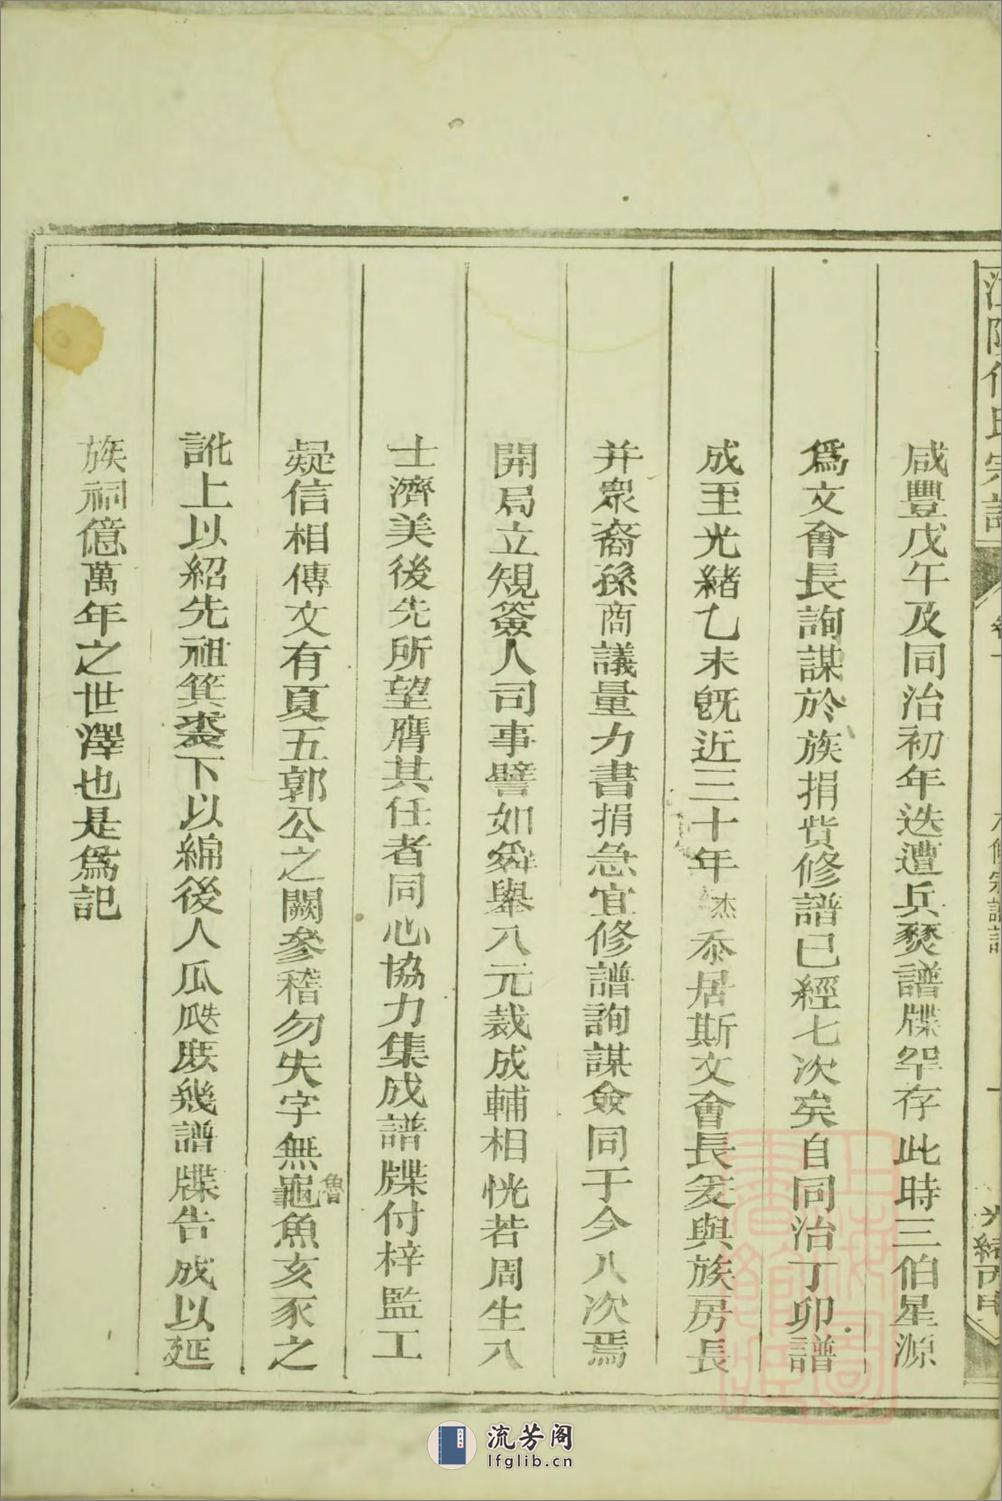 咸豐戊午及同治初年迭遭兵燹譜牒罕存此時三伯星源
爲文會長詢謀於族捐貲修譜已經七次矣自同治丁卯譜
成至光緒乙未旣近三十年杰忝居斯文會長爰與族房長
并衆裔孫商議量力書捐急宜修譜詢謀僉同于今八次焉
開局立規簽人司事譬如舜舉八元裁成輔相恍若周生八
士濟美後先所望膺其任者同心協力集成譜牒付梓監工
疑信相傳文有夏五郭公之闕參稽勿失字無魯龜魚亥豕之
訛上以紹先祖箕裘下以綿後人瓜瓞庶幾譜牒告成以延
族祠億萬年之世澤也是爲記
流芳阁
lfglib.cn